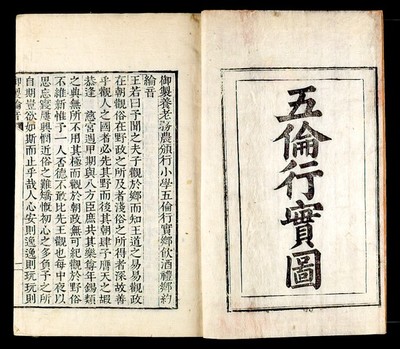 五倫行實圖
御製養老務農頒行小學五倫行實鄉飲酒禮鄉約
綸音
王若曰予聞之夫子觀於鄉而知王道之易易觀政
在朝觀俗在野政之所及者淺俗之所得者深故善
乎觀人之國者必先其野而後其朝肆予膺天之嘏
恭逢 慈宮週甲期與八方臣庶共其樂尊年錫類
之典無所不用其極而觀於朝政無可紀觀於野俗
不維新惟予一人否德不敢比先王觀也每中夜以
思忘寢屢興憫近俗之難矯慨初心之多負予之所
自期豈欲如斯而止乎哉人心安則逸逸則玩玩則
御製綸音 一